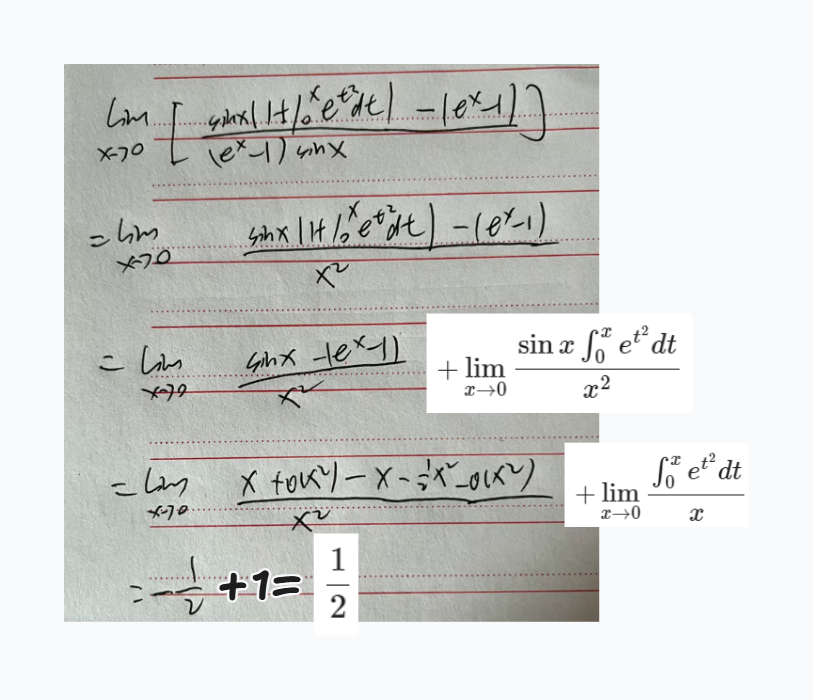 lim x→0 [ (sinx(1+∫₀ˣ e^(t²)dt) - (e^x-1)) / ((e^x-1) sinx) ]
= lim x→0 (sinx(1+∫₀ˣ e^(t²)dt) - (e^x-1)) / x²
= lim x→0 (sinx - (e^x-1)) / x² + lim x→0 (sin x ∫₀ˣ e^(t²) dt) / x²
= lim x→0 (x + o(x²) - x - ½x² - o(x²)) / x² + lim x→0 (∫₀ˣ e^(t²) dt) / x
= -1/2 +1= 1/2